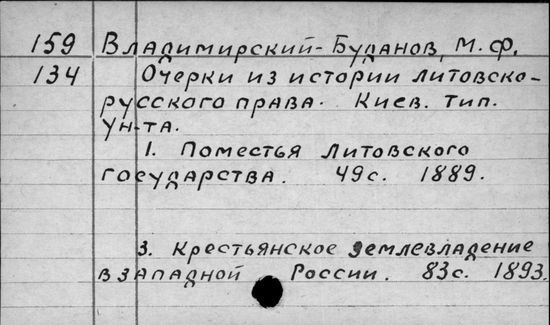 159 Владимирский-Буданов, М.Ф.
134 Очерки из истории литовско-
русского права. Киев. тип.
ун-та.
1. Поместья Литовского
государства. 49с. 1889.
3. Крестьянское землевладение
в западной России. 83с. 1893.